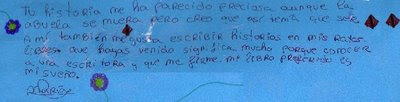 Tu historia me ha parecido preciosa aunque la
abuela se muera pero creo que así tenía que ser
A mí también me gusta escribir historias en mis ratos
libres. que hayas venido significa mucho porque conocer
a una escritora y que me firme mi libro preferido es
mi sueño.